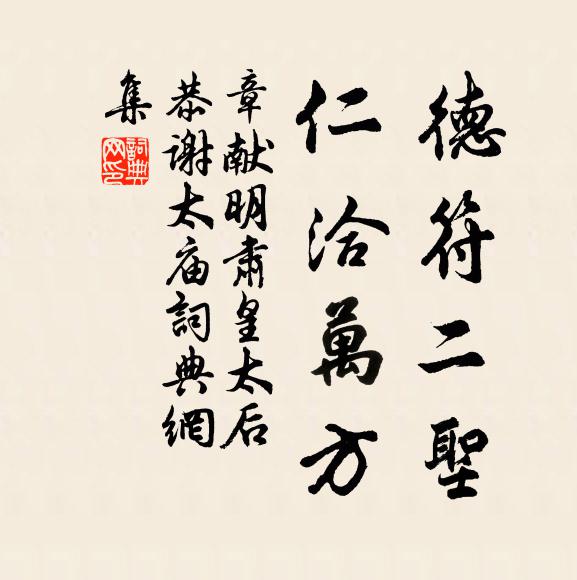 德符二聖
仁洽萬方
章献明肅皇太后
恭谢太庙詞典網
集
詞典
网印